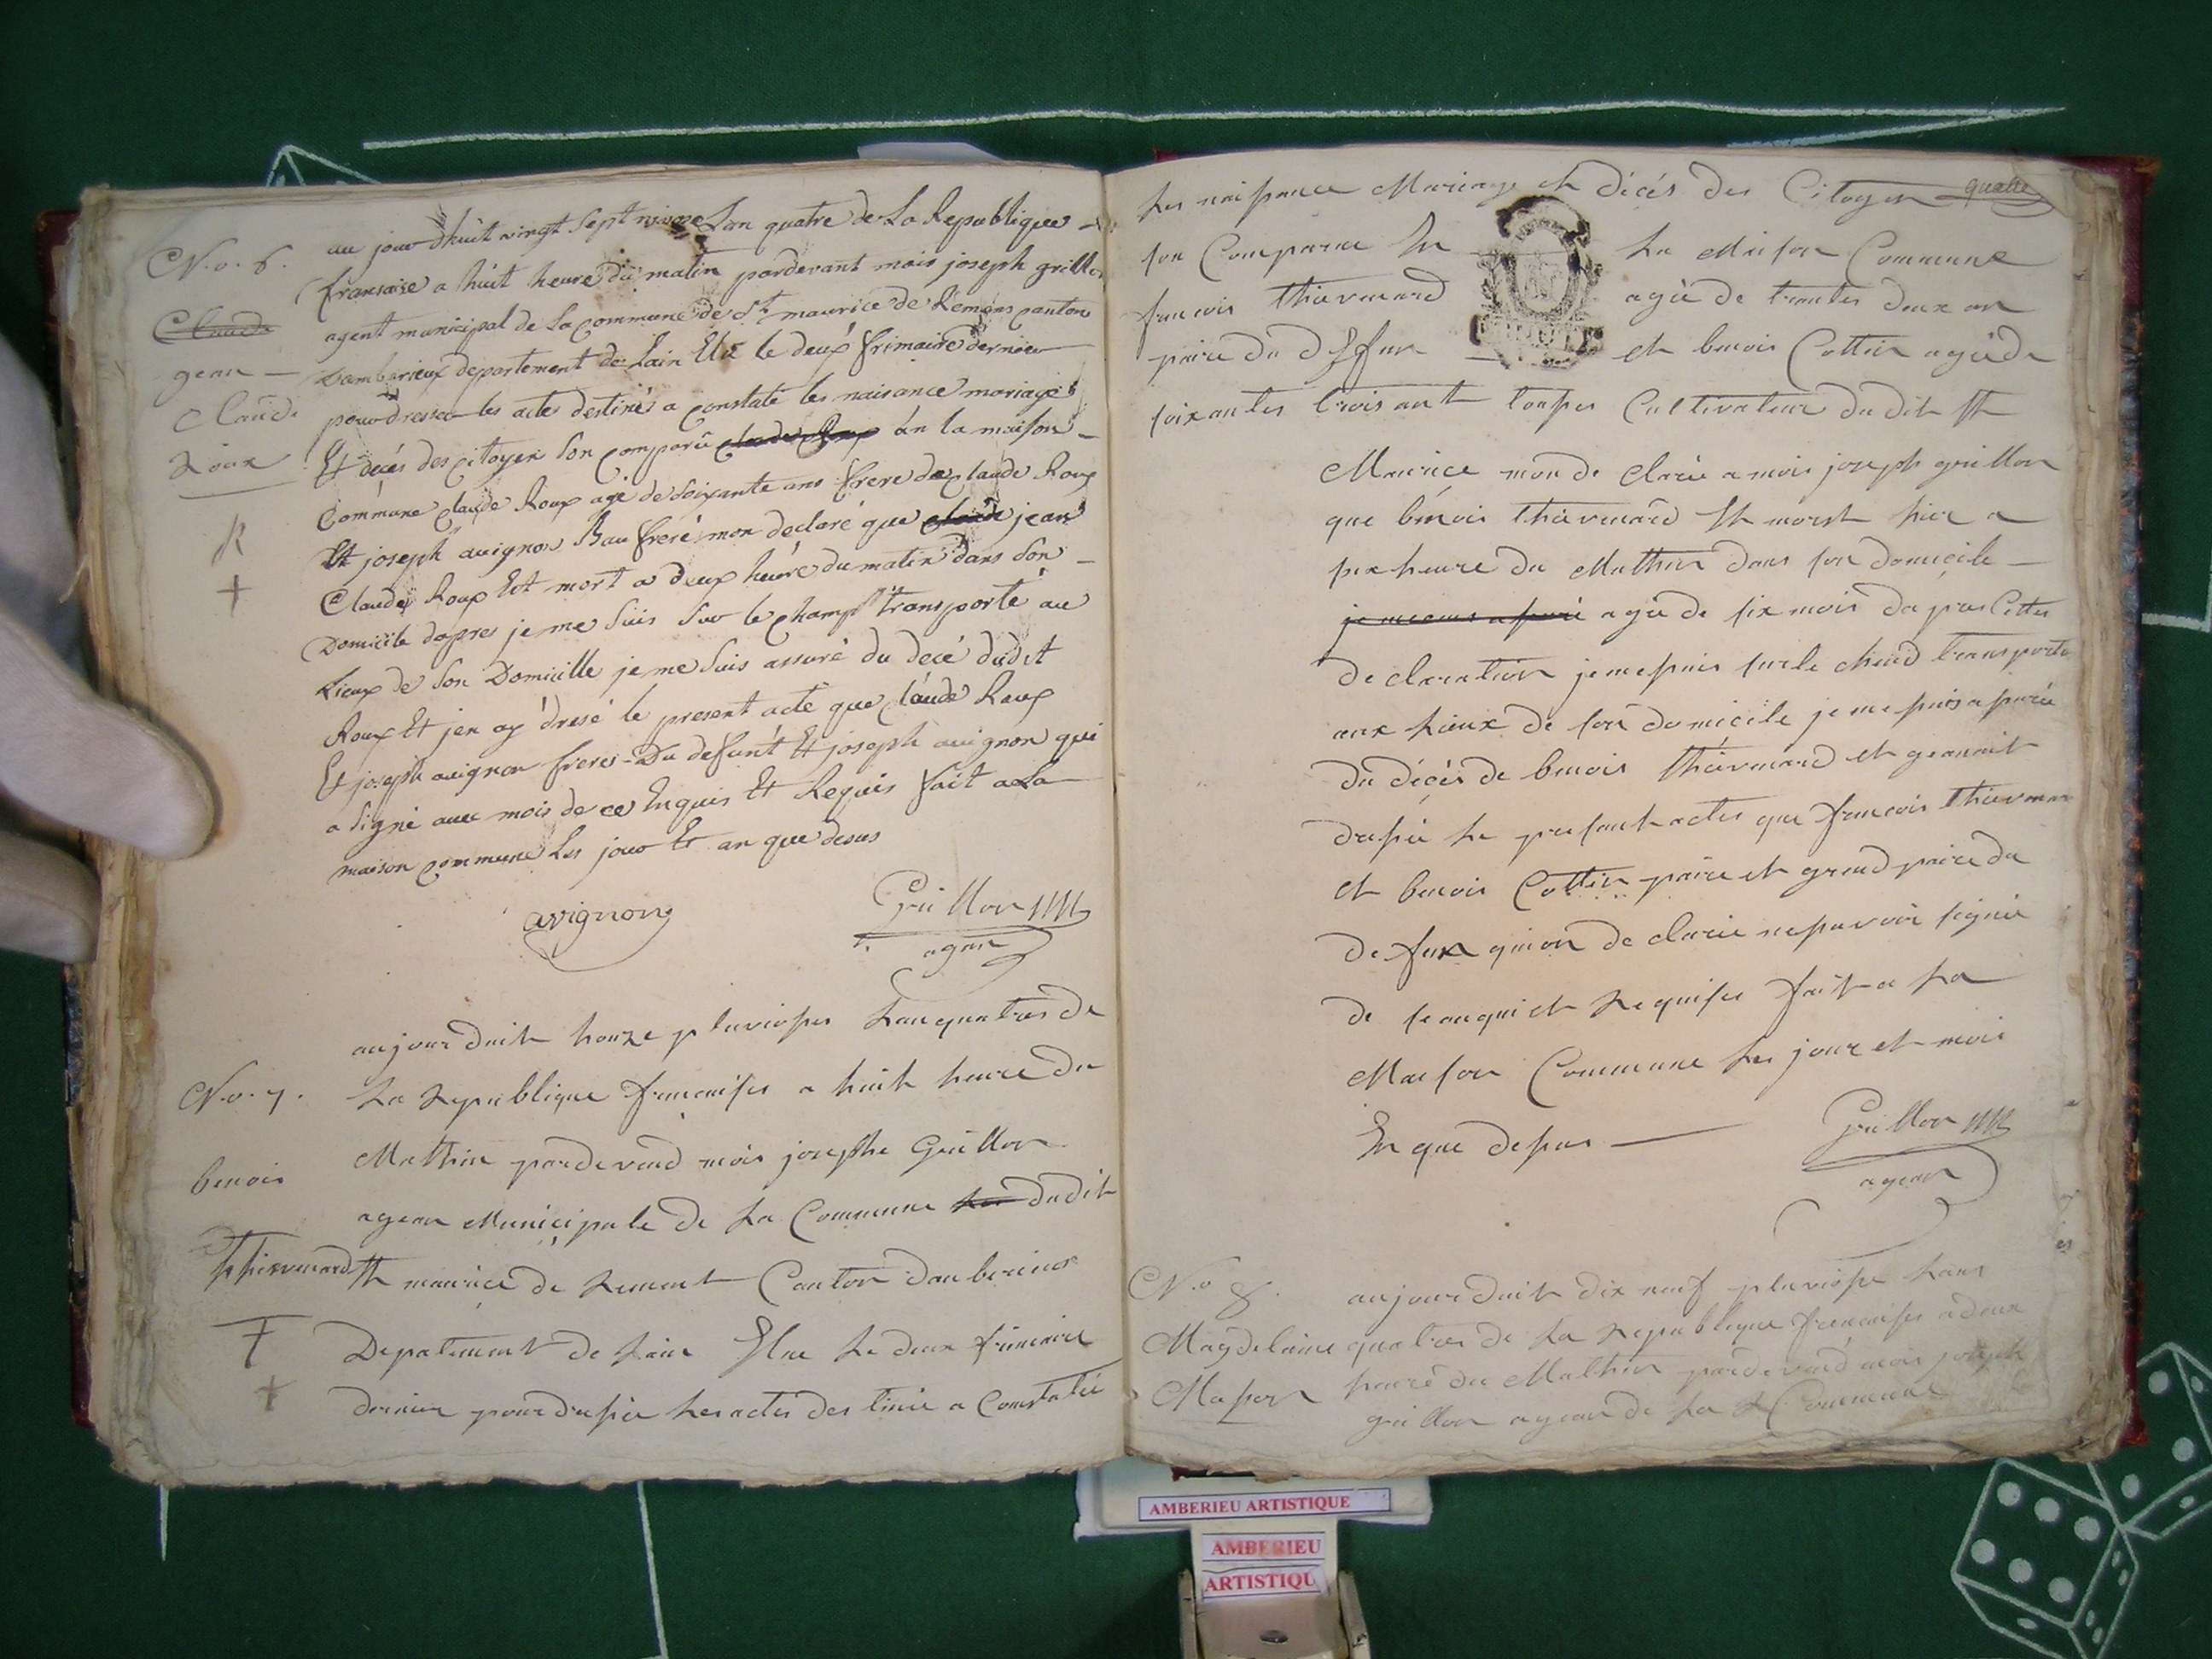 N.o. 6.
au jourdhuit vingt Sept nivose Lan quatre de La Republique
fransaise a huit heure du matin pardevant mois joseph grillon
agent municipal de la commune de St maurice de Remens canton
Dambérieux departement de Lain Elú le deux frimaire dernier
pour dresser les actes destiné a constaté les naisance mariage
Et decés des citoyen Son comparû claude Roux án la maison
Commune claude Roux agé de Soixante ans frere de claude Roux
Et joseph avignon Bau freré mon declaré que claude jean
Claude Roux Est mort a deux heure du matin dans Son
Domicile dapres je me Suis Sur le champ transporté au
Lieux de Son Domicille je me Suis assuré du decé dudit
Roux Et jen ay dresé le present acte que claude Roux
Et joseph avignon freres Du defunt Et joseph avignon qui
a Signé avec mois de ce Enquis Et Requis fait a La
maison commune Les jour Et an que desus
Claude
gean
Claude
Roux
R
avignon
Grillon
agean
N.o. 7.
benois
Thievenard
aujourduit honze pluviose Lan quatres de
La Republique francaises a huit heure du
Mathin pardevend mois josephe Grillon
agean Municipale de La Commune dudit
St maurice de Rement Canton danberieux
Depatement de Lain Elue Le deux frimaire
dernier pour dressée Les actes destinée a Constatée
quatre
Les naissance Mariage et décés des Citoyen
son Comparue En La Maison Commune
francois Thievenard agée de trantes deux an
paire du Deffun et benois Cottin agée de
soixantes trois ant touses Cultivateur dudit St
Maurice mon de clarée a mois joseph grillon
que benois Thievenard Et morst hier a
six heure du Mathin dans son domicile
je me suis assuré agée de six mois da pres Cettes
declaration je me suis sur le chand transporte
aux Lieux de son domicile je me suis assurée
du décés de benois Thievenard et geanait
dressée Le presant actes que francois Thievenard
et benois Cottin paire et grand paire du
defun quion de clarée ne savoir signée
de se anquis et Requises fait a La
Maison Commune Les jour et mois
En que dessus
Grillon
agean
N.o 8.
Magdelaine
Masson
aujourduit dix neuf pluviose Lans
quatres de La Republique francaises a deux
heure du Mathin pardevend mois joseph
grillon agean de La Commune
AMBERIEU ARTISTIQUE
AMBERIEU
ARTISTIQU